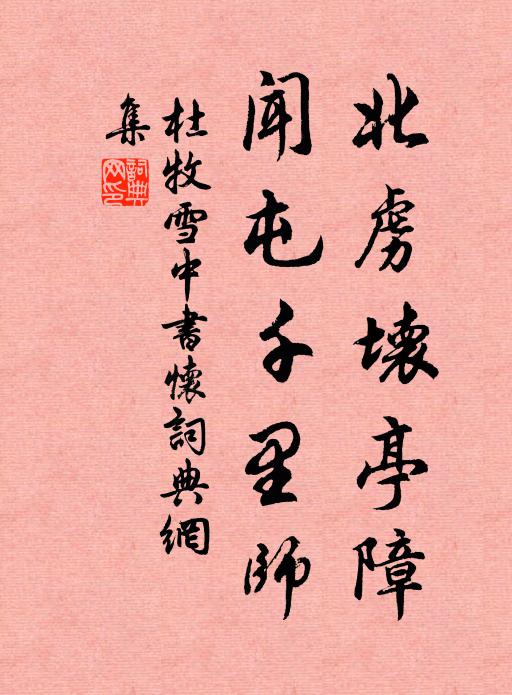 北虜壞亭障
聞屯千里師
杜牧雪中書懷詞典網
集
詞典網印